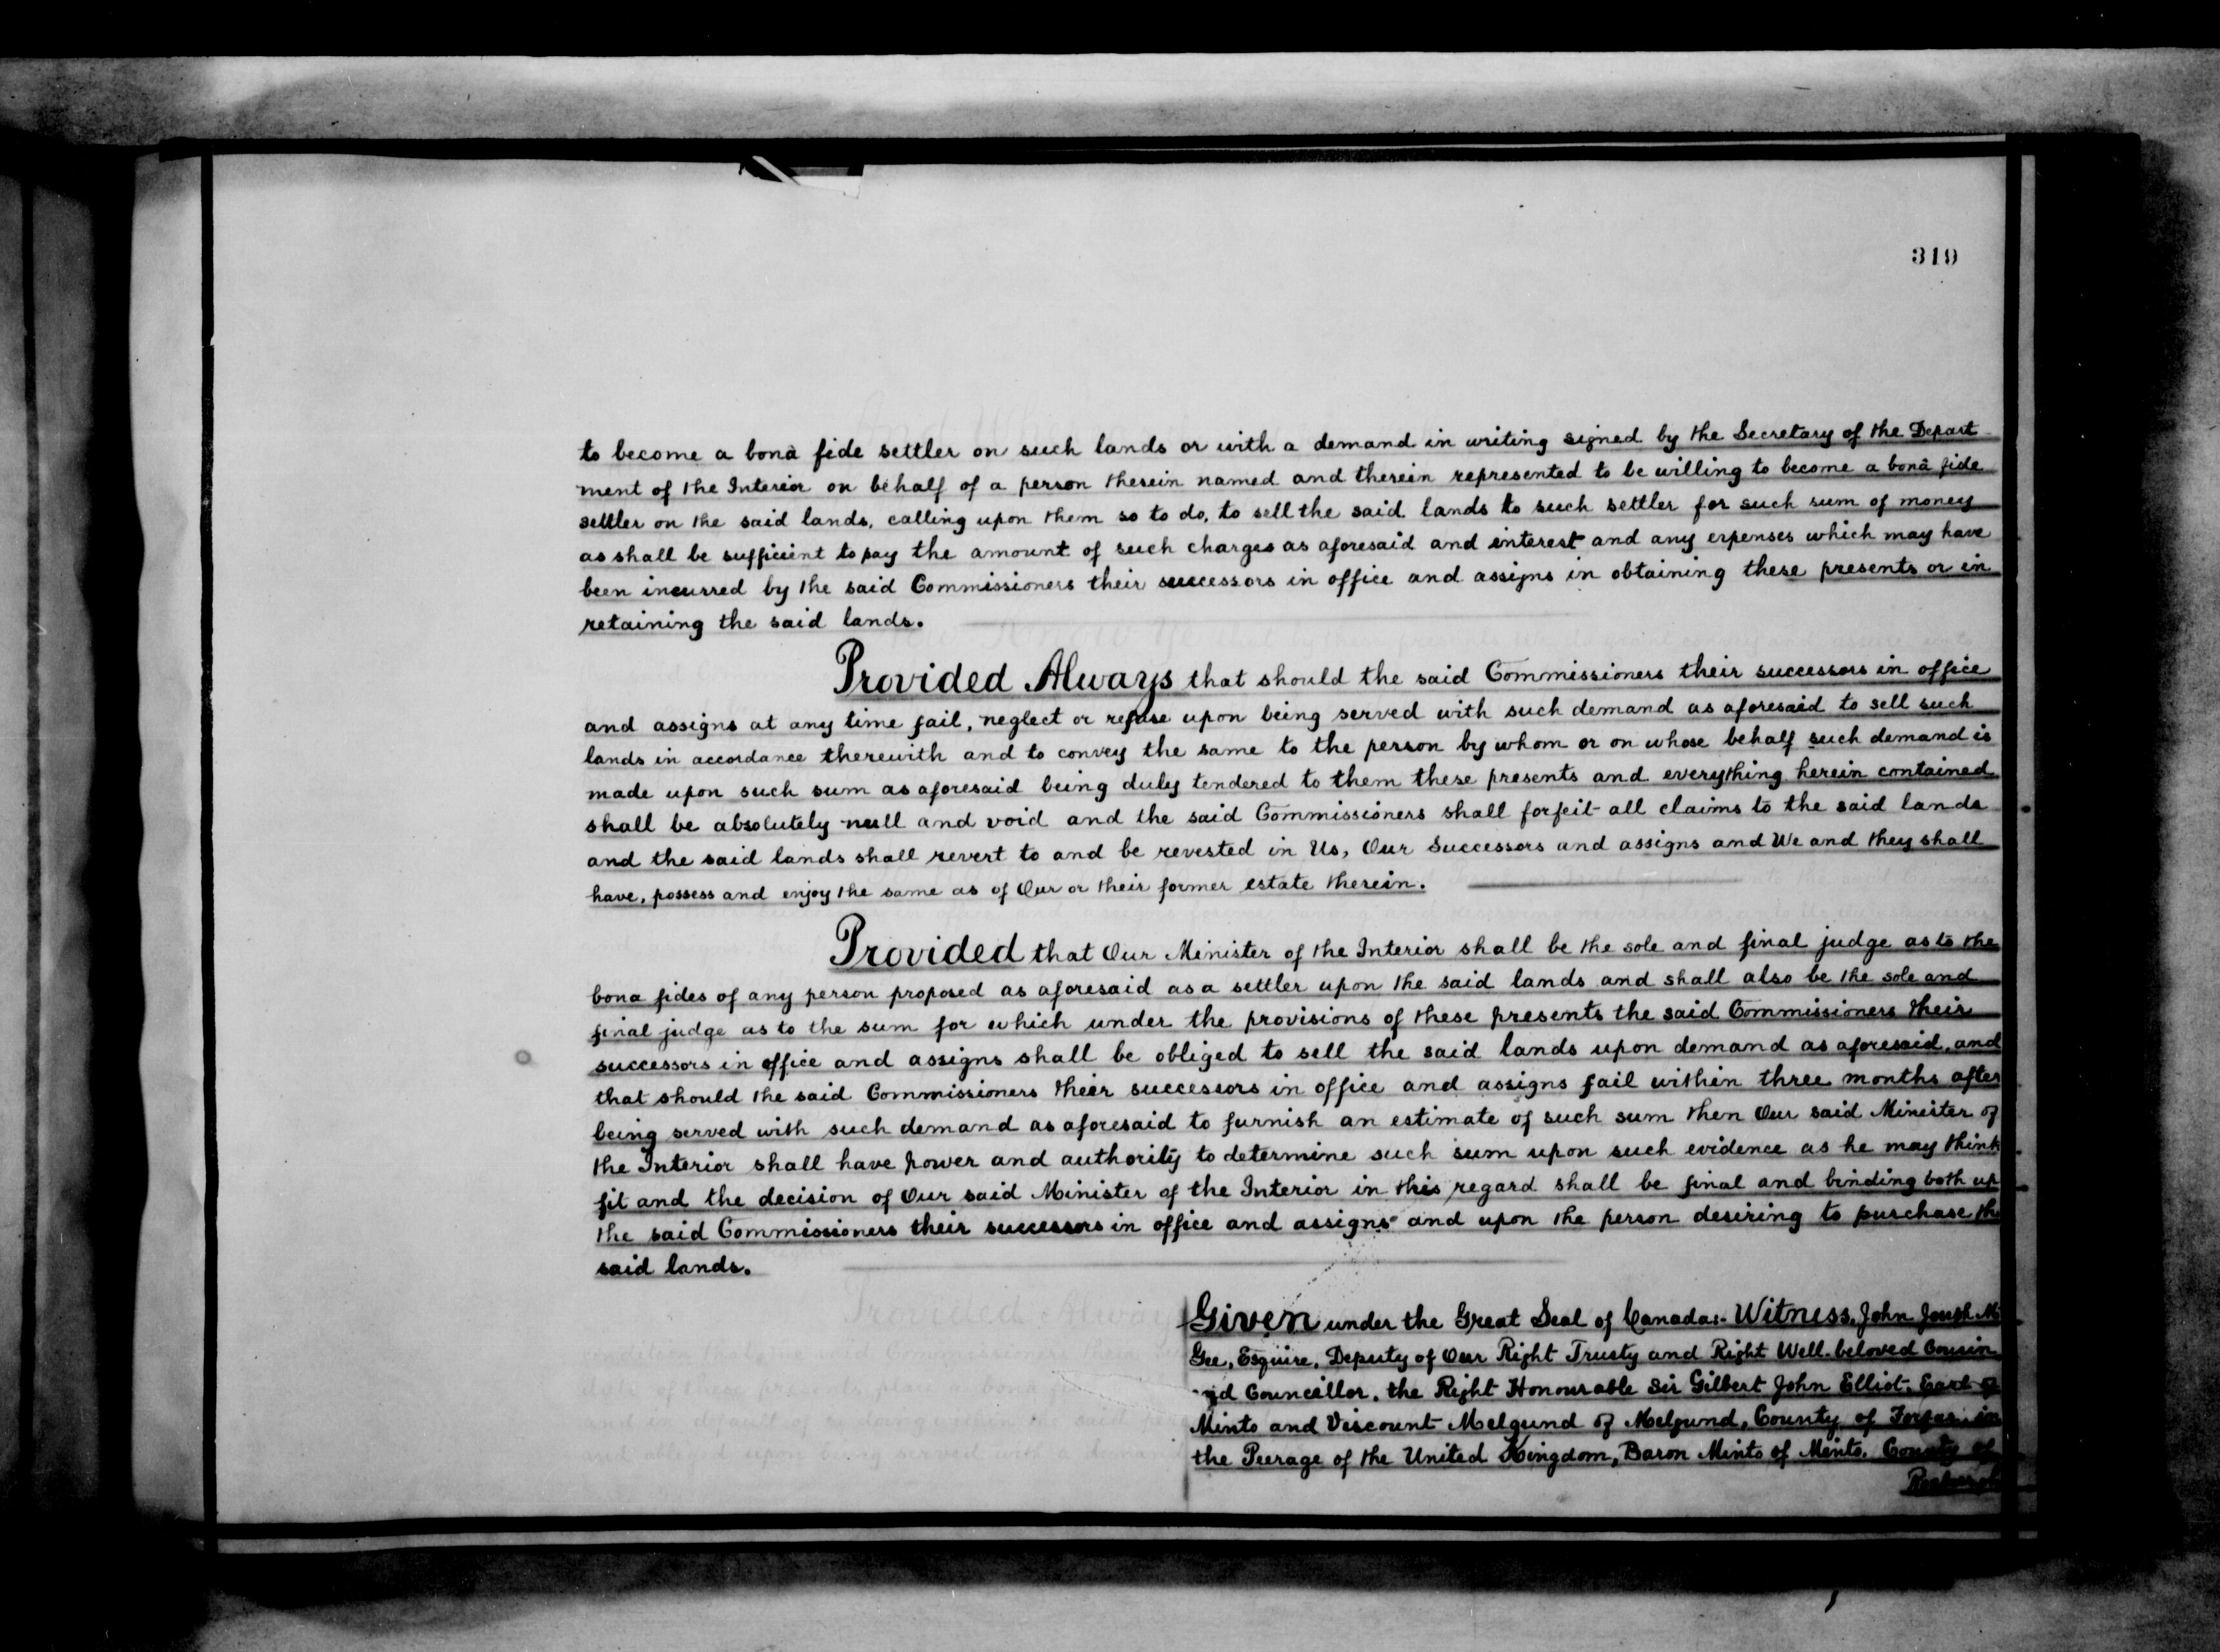 319
to become a bonâ fide settler on such lands or with a demand in writing signed by the Secretary of the Depart-
ment of the Interior on behalf of a person therein named and therein represented to be willing to become a bonâ fide
settler on the said lands, calling upon them so to do, to sell the said lands to such settler for such sum of money
as shall be sufficient to pay the amount of such charges as aforesaid and interest and any expenses which may have
been incurred by the said Commissioners their successors in office and assigns in obtaining these presents or in
retaining the said lands.
Provided Always that should the said Commissioners their successors in office
and assigns at any time fail, neglect or refuse upon being served with such demand as aforesaid to sell such
lands in accordance therewith and to convey the same to the person by whom or on whose behalf such demand is
made upon such sum as aforesaid being duly tendered to them these presents and everything herein contained
shall be absolutely null and void and the said Commissioners shall forfeit all claims to the said lands
and the said lands shall revert to and be revested in Us, Our Successors and assigns and We and they shall
have, possess and enjoy the same as of Our or their former estate therein.
Provided that Our Minister of the Interior shall be the sole and final judge as to the
bona fides of any person proposed as aforesaid as a settler upon the said lands and shall also be the sole and
final judge as to the sum for which under the provisions of these presents the said Commissioners their
successors in office and assigns shall be obliged to sell the said lands upon demand as aforesaid, and
that should the said Commissioners their successors in office and assigns fail within three months after
being served with such demand as aforesaid to furnish an estimate of such sum then Our said Minister of
the Interior shall have power and authority to determine such sum upon such evidence as he may think
fit and the decision of Our said Minister of the Interior in this regard shall be final and binding both up
the said Commissioners their successors in office and assigns and upon the person desiring to purchase the
said lands.
Given under the Great Seal of Canada:- Witness, John Joseph Mc
Gee, Esquire, Deputy of Our Right Trusty and Right Well-beloved Cousin
and Councillor, the Right Honourable Sir Gilbert John Elliot, Earl of
Minto and Viscount Melgund of Melgund, County of Forfar, in
the Peerage of the United Kingdom, Baron Minto of Minto, County of
Roxburgh